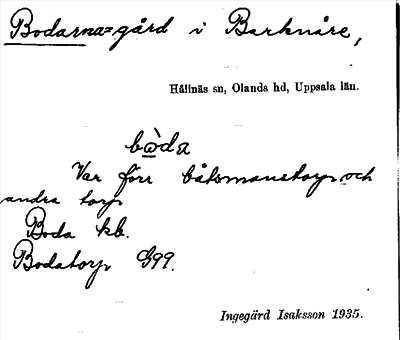 Bodarna=gård i Barknåre,
Hållnäs sn, Olands hd, Uppsala län.
bὼda
Var förr båtsmanstorp och
andra torp
Boda kb.
Bodatorp G99.
Ingegärd Isaksson 1935.